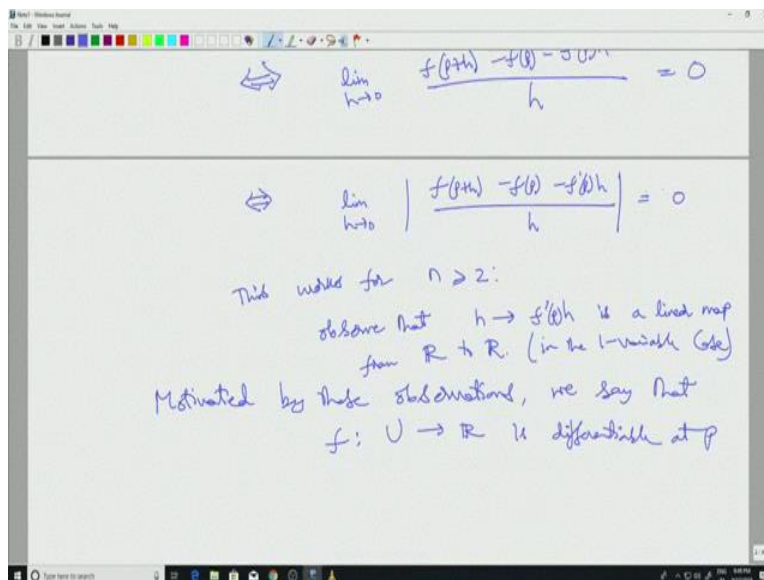 Note1 - Windows Journal
File Edit View Insert Actions Tools Help
⇔ lim h→0 f(p+h) - f(p) - f'(p)h / h = 0
⇔ lim h→0 | f(p+h) - f(p) - f'(p)h / h | = 0
This works for n ⩾ 2:
observe that h → f'(p)h is a linear map
from R to R. (in the 1-variable case)
Motivated by these observations, we say that
f: U → R is differentiable at p
Type here to search